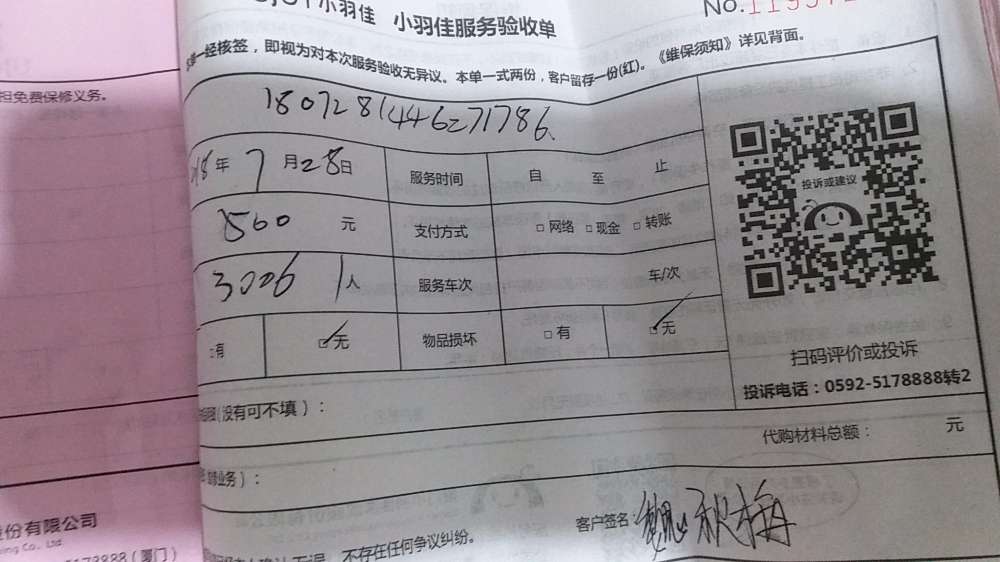 小羽佳 小羽佳服务验收单
No.
单一经核签，即视为对本次服务验收无异议。本单一式两份，客户留存一份(红)。《维保须知》详见背面。
担免费保修义务。
1807281446271786
18年7月28日 服务时间 自 至 止
560 元 支付方式 □网络 □现金 □转账
3006 1人 服务车次 车/次
□有 □无 物品损坏 □有 □无
投诉或建议
扫码评价或投诉
投诉电话：0592-5178888转2
(没有可不填)：
代购材料总额： 元
业务)：
客户签名：魏秋梅
不存在任何争议纠纷。
份有限公司
Co., Ltd
5178888（厦门）